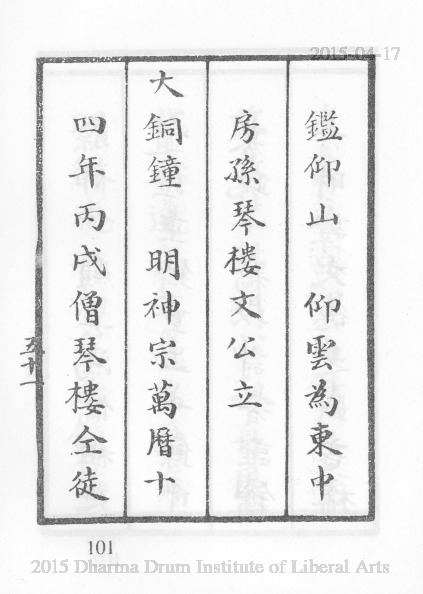 2015-04-17
鑑仰山　仰雲為東中
房孫琴楼文公立
大銅鐘　明神宗萬曆十
四年丙戌僧琴楼仝徒
五十一
101
2015 Dharma Drum Institute of Liberal Arts